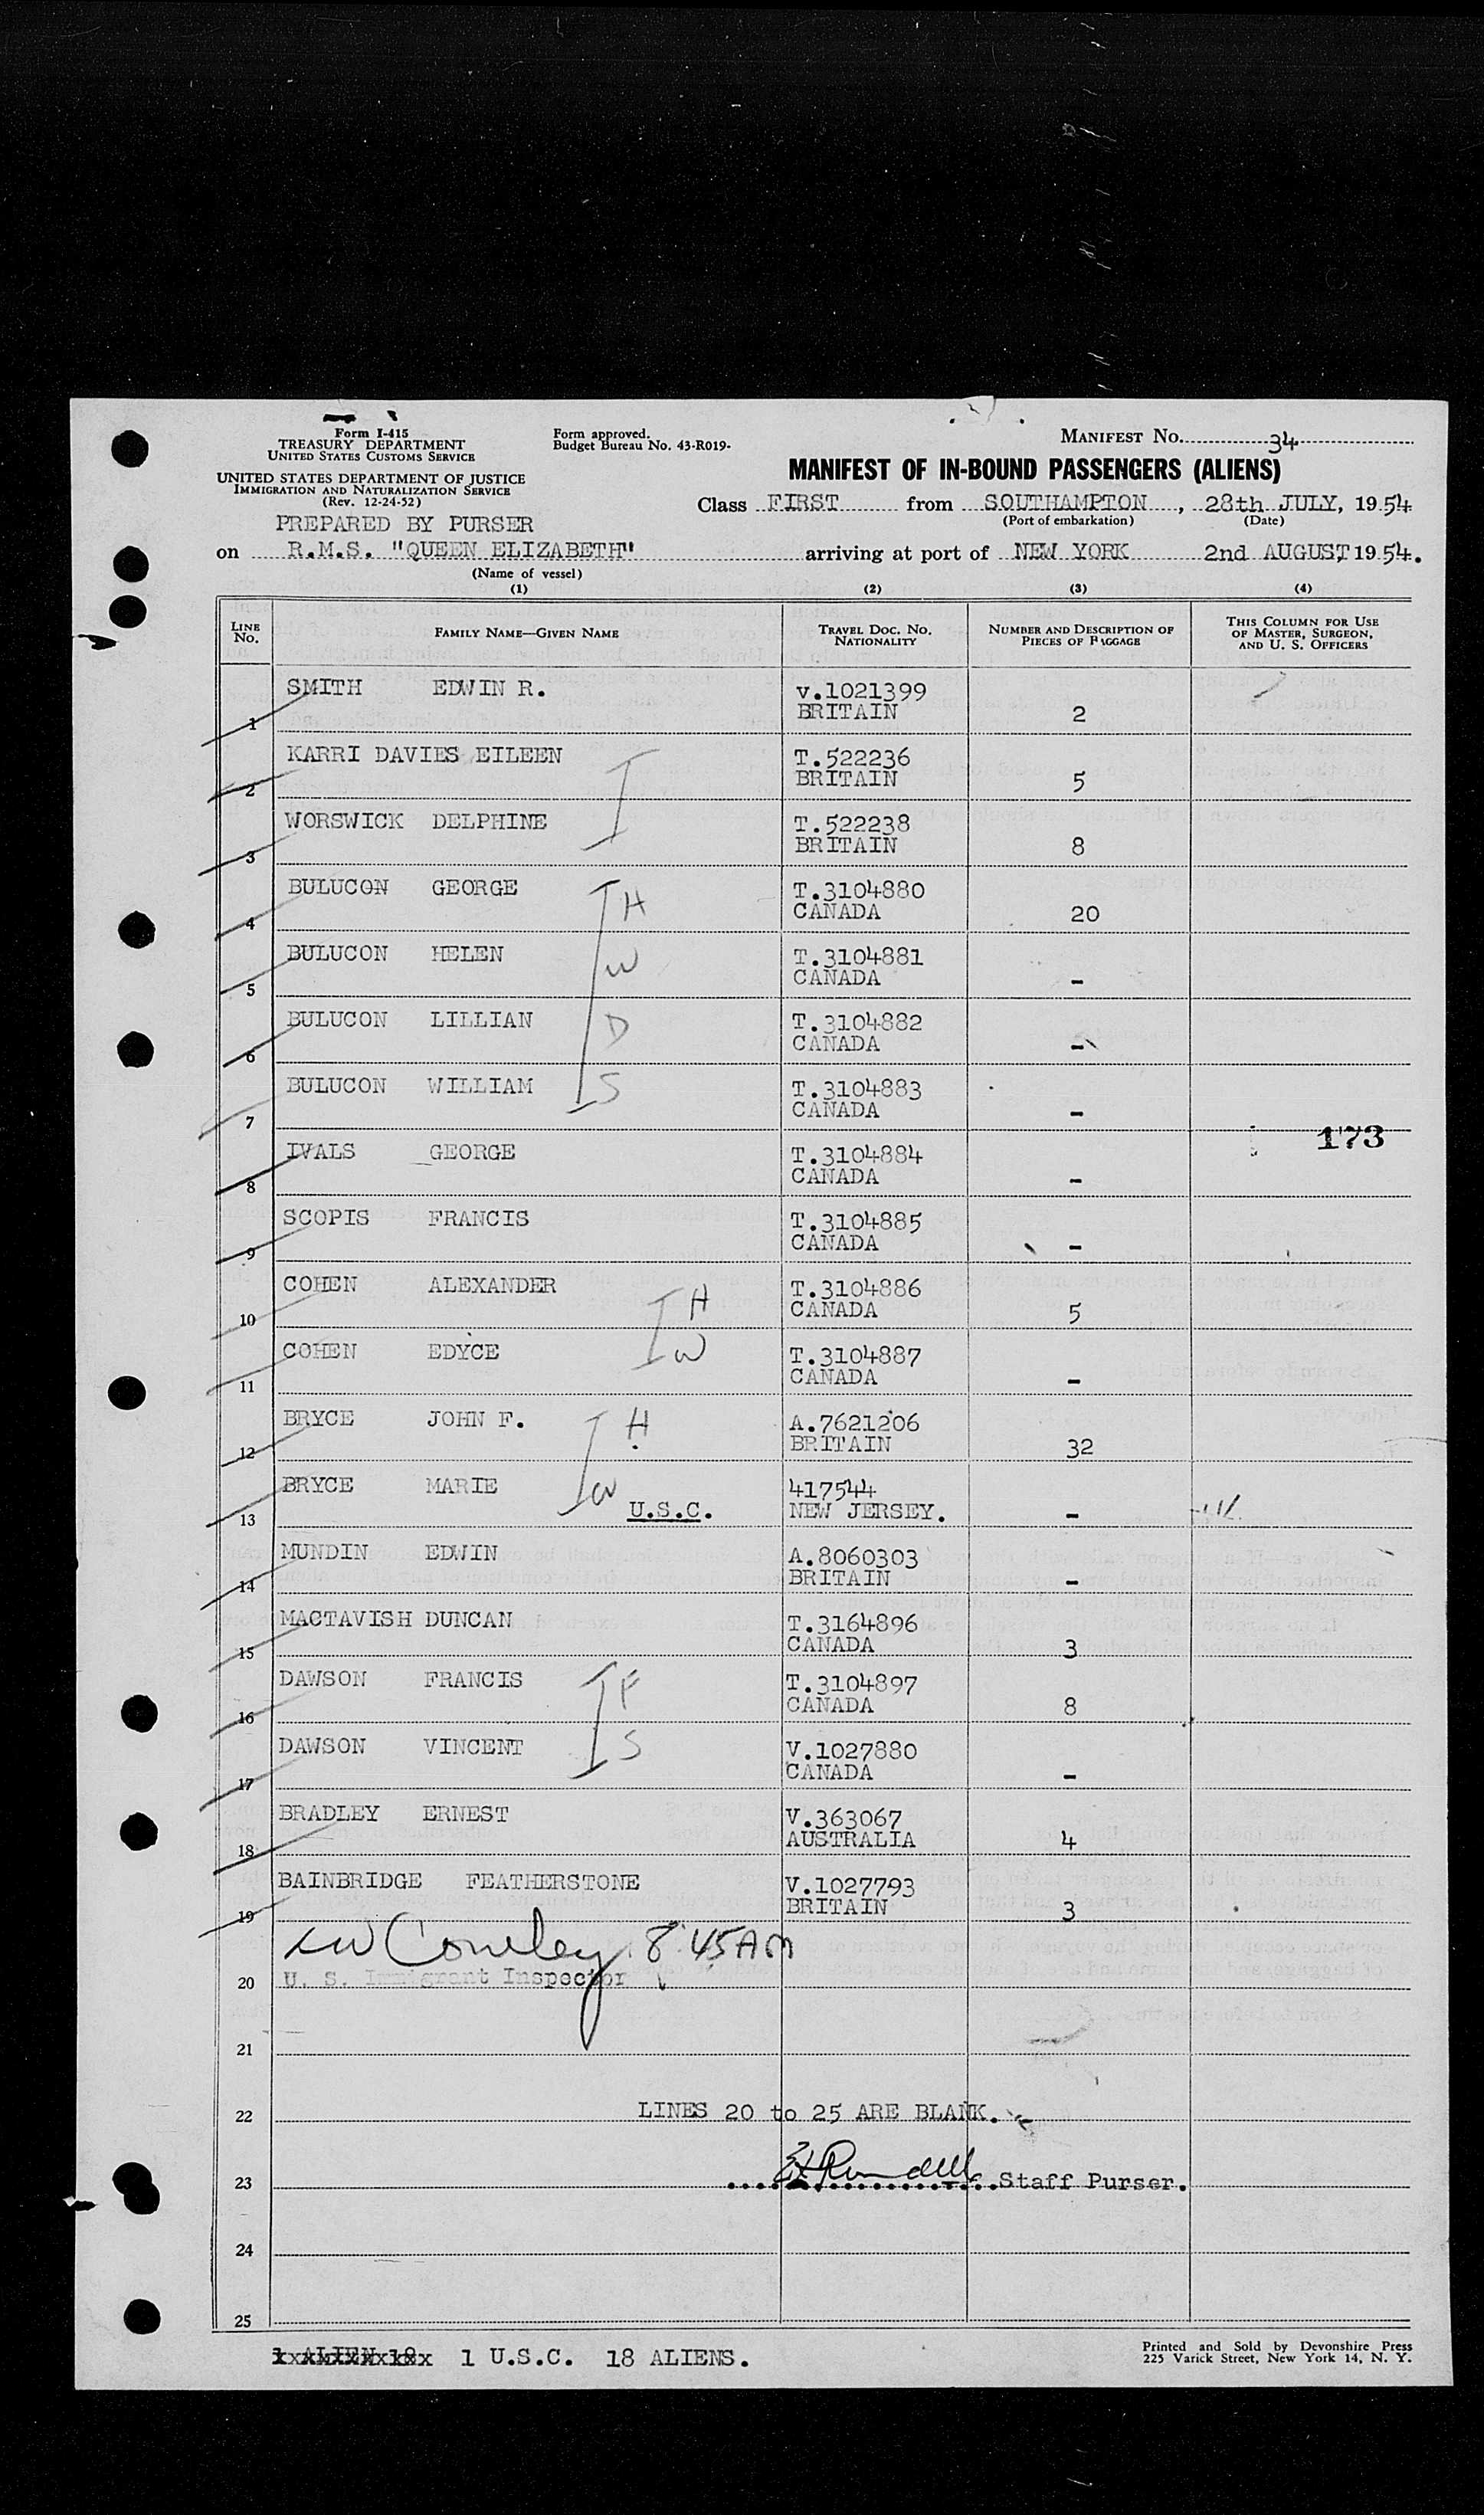 Form I-415
TREASURY DEPARTMENT
UNITED STATES CUSTOMS SERVICE
UNITED STATES DEPARTMENT OF JUSTICE
IMMIGRATION AND NATURALIZATION SERVICE
(Rev. 12-24-52)
PREPARED BY PURSER
Form approved.
Budget Bureau No. 43-R019-
MANIFEST NO. 34
MANIFEST OF IN-BOUND PASSENGERS (ALIENS)
Class FIRST from SOUTHAMPTON, 28th JULY, 1954
(Port of embarkation) (Date)
on R.M.S. "QUEEN ELIZABETH" arriving at port of NEW YORK 2nd AUGUST, 1954.
(Name of vessel)
(1) (2) (3) (4)
LINE NO. FAMILY NAME—GIVEN NAME TRAVEL DOC. NO. NATIONALITY NUMBER AND DESCRIPTION OF PIECES OF BAGGAGE THIS COLUMN FOR USE OF MASTER, SURGEON, AND U. S. OFFICERS
SMITH EDWIN R. v.1021399
1 BRITAIN 2
KARRI DAVIES EILEEN T.522236
2 BRITAIN 5
WORSWICK DELPHINE T.522238
3 BRITAIN 8
BULUCON GEORGE H T.3104880
4 CANADA 20
BULUCON HELEN W T.3104881
5 CANADA -
BULUCON LILLIAN D T.3104882
6 CANADA -
BULUCON WILLIAM S T.3104883
7 CANADA -
173
IVALS GEORGE T.3104884
8 CANADA -
SCOPIS FRANCIS T.3104885
9 CANADA -
COHEN ALEXANDER H T.3104886
10 CANADA 5
COHEN EDYCE W T.3104887
11 CANADA -
BRYCE JOHN F. H A.7621206
12 BRITAIN 32
BRYCE MARIE W 417544
13 U.S.C. NEW JERSEY. -
MUNDIN EDWIN A.8060303
14 BRITAIN -
MACTAVISH DUNCAN T.3164896
15 CANADA 3
DAWSON FRANCIS F T.3104897
16 CANADA 8
DAWSON VINCENT S V.1027880
17 CANADA -
BRADLEY ERNEST V.363067
18 AUSTRALIA 4
BAINBRIDGE FEATHERSTONE V.1027793
19 BRITAIN 3
Cowley 8 45 AM
20 U. S. Immigrant Inspector
21
22 LINES 20 to 25 ARE BLANK.
23 Staff Purser.
24
25
1 U.S.C. 18 ALIENS.
Printed and Sold by Devonshire Press
225 Varick Street, New York 14, N. Y.